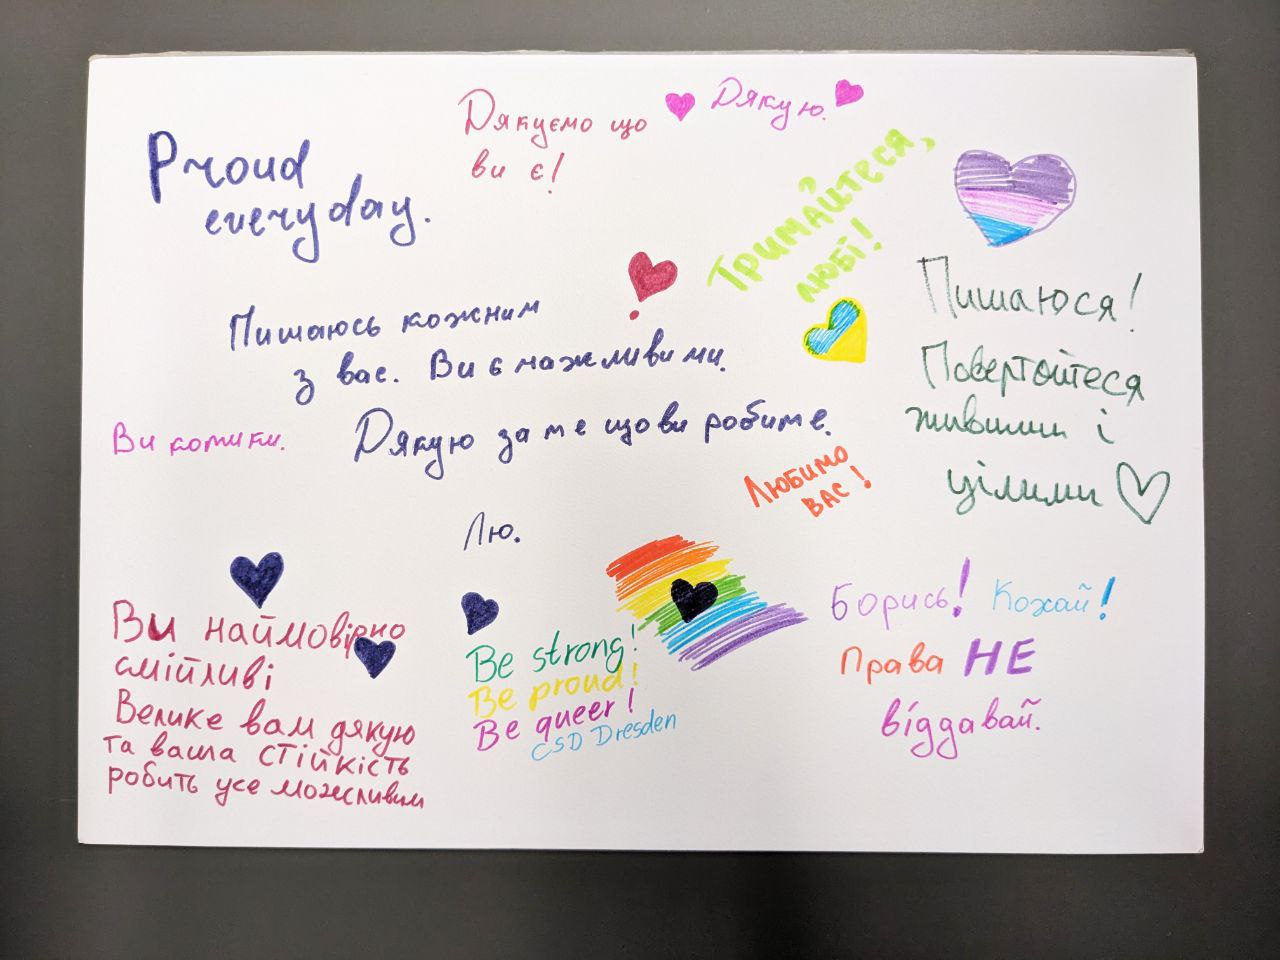 Proud
everyday.
Дякуємо що
ви є!
Дякую.
Тримайтеся,
любі!
Пишаюсь кожним
з вас. Ви є важливими.
Дякую за те що ви робите.
Пишаюся!
Повертойтеся
живими і
цілими
Ви котики.
Любимо
вас!
Лю.
Ви наймовірно
смійливі
Велике вам дякую
та ваша стійкість
робить усе можливим
Be strong!
Be proud!
Be queer!
CSD Dresden
Борись! Кохай!
Права НЕ
віддавай.